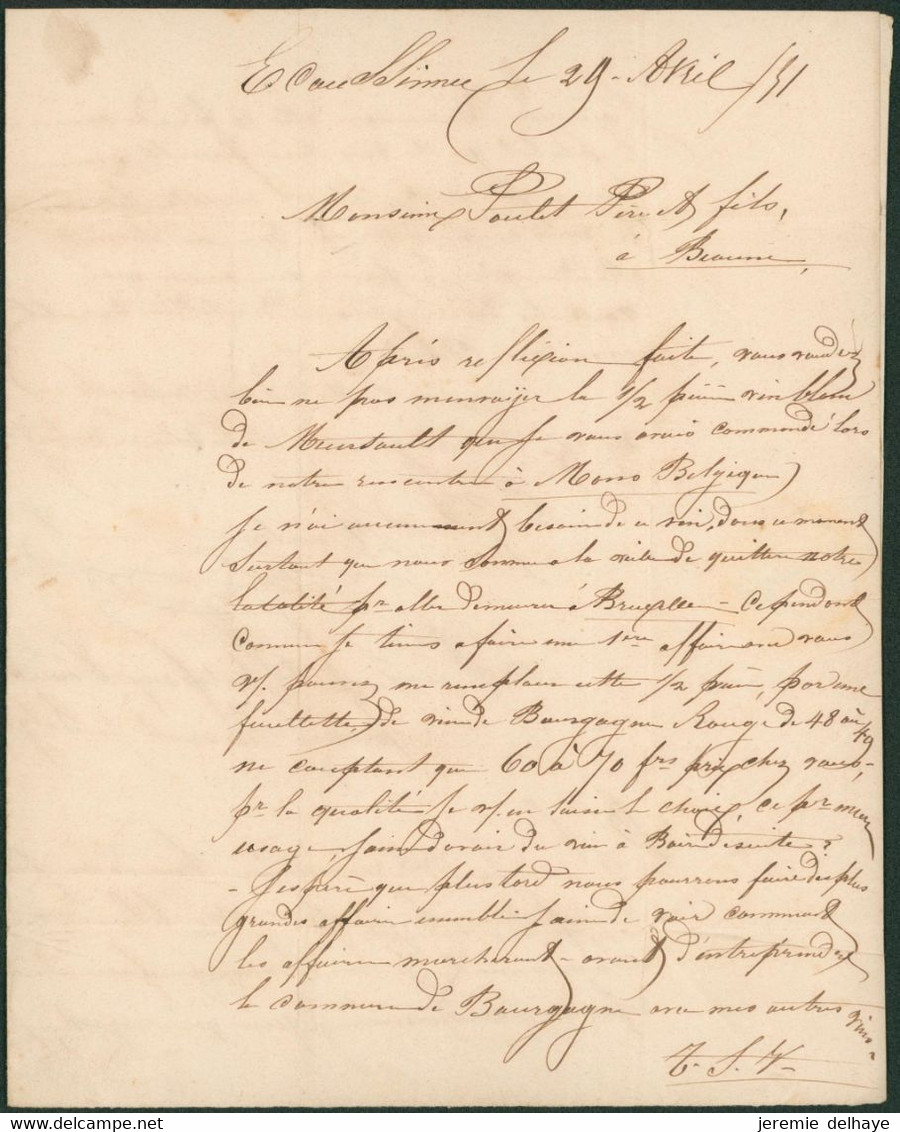 Ecaussinnes le 29 Avril /51
Monsieur Poulet Père et fils,
à Beaune,
Après reflexion faite, vous voudrez
bien ne pas m'envoijer la 1/2 pièce vin blanc
de Meursault que je vous avais commandé lors
de notre rencontre à Mons Belgique
Je n'ai aucunement besoin de ce vin, dans ce moment
surtout que nous somme a la veille de quitter notre
localité pr aller demeurer à Bruxelles - cependant
comme je tiens a faire une 1ère affaire avec vous
vs. pouvez me remplacer cette 1/2 pièce, par une
feuillette, de vin de Bourgogne Rouge de 48 ou 49
ne coutant que 60 à 70 frs prix chez vous,
pr la qualité je vs. en laisse le choix, ce pr mon
usage, afin d'avoir du vin à Boire de suite.
- J'espère que plus tard nous pourrons faire de plus
grandes affaires ensemble, afin de voir comment
les affaires marcheront - avant d'entreprendre
le commerce de Bourgogne avec mes autres vins -
T. S. V -
delcampe.net
jeremie delhaye